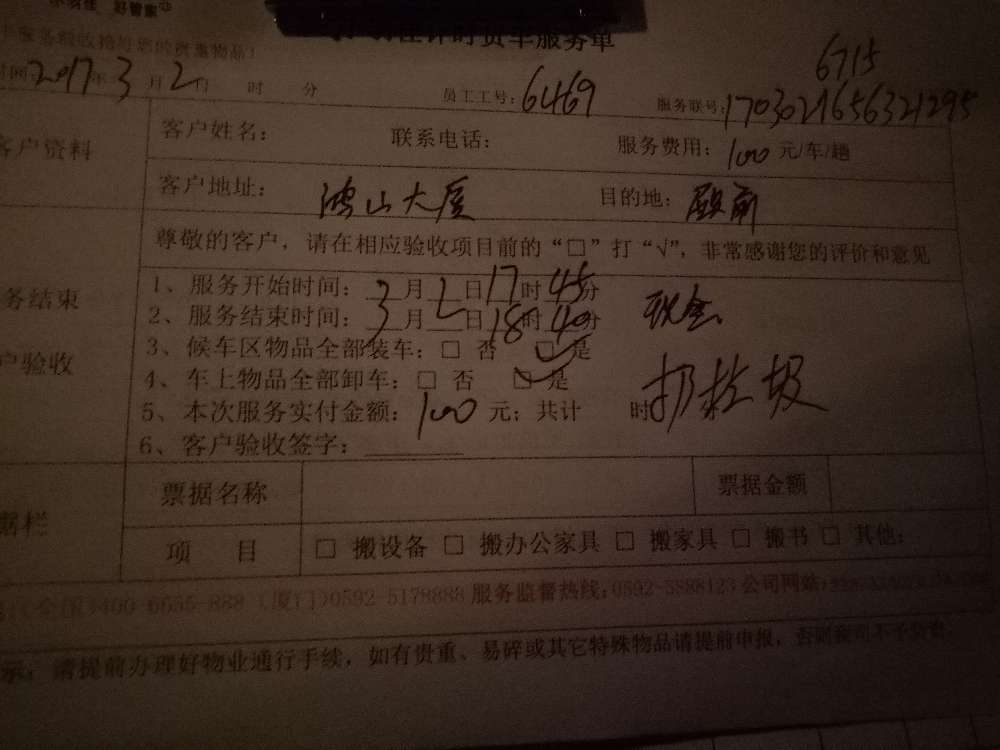 好管家
服务验收擔好您的贵重物品!
2017年3月2日 时 分 员工工号:6469 服务联号:1703021656321295
6715
客户资料
客户姓名: 联系电话: 服务费用:100元/车/趟
客户地址:鸿山大厦 目的地:殿前
尊敬的客户,请在相应验收项目前的“□”打“√”,非常感谢您的评价和意见
务结束
户验收
1、服务开始时间:3月2日17时45分
2、服务结束时间:3月2日18时40分 现金
3、候车区物品全部装车:□ 否 ☑是
4、车上物品全部卸车:□ 否 ☑是
5、本次服务实付金额:100元;共计 时 扔垃圾
6、客户验收签字:
据栏
票据名称 票据金额
项 目 □ 搬设备 □ 搬办公家具 □ 搬家具 □ 搬书 □ 其他:
(全国)400-6655-888 (厦门)0592-5178888 服务监督热线:0592-5888123 公司网站:
示:请提前办理好物业通行手续,如有贵重、易碎或其它特殊物品请提前申报,否则我司不予负责。